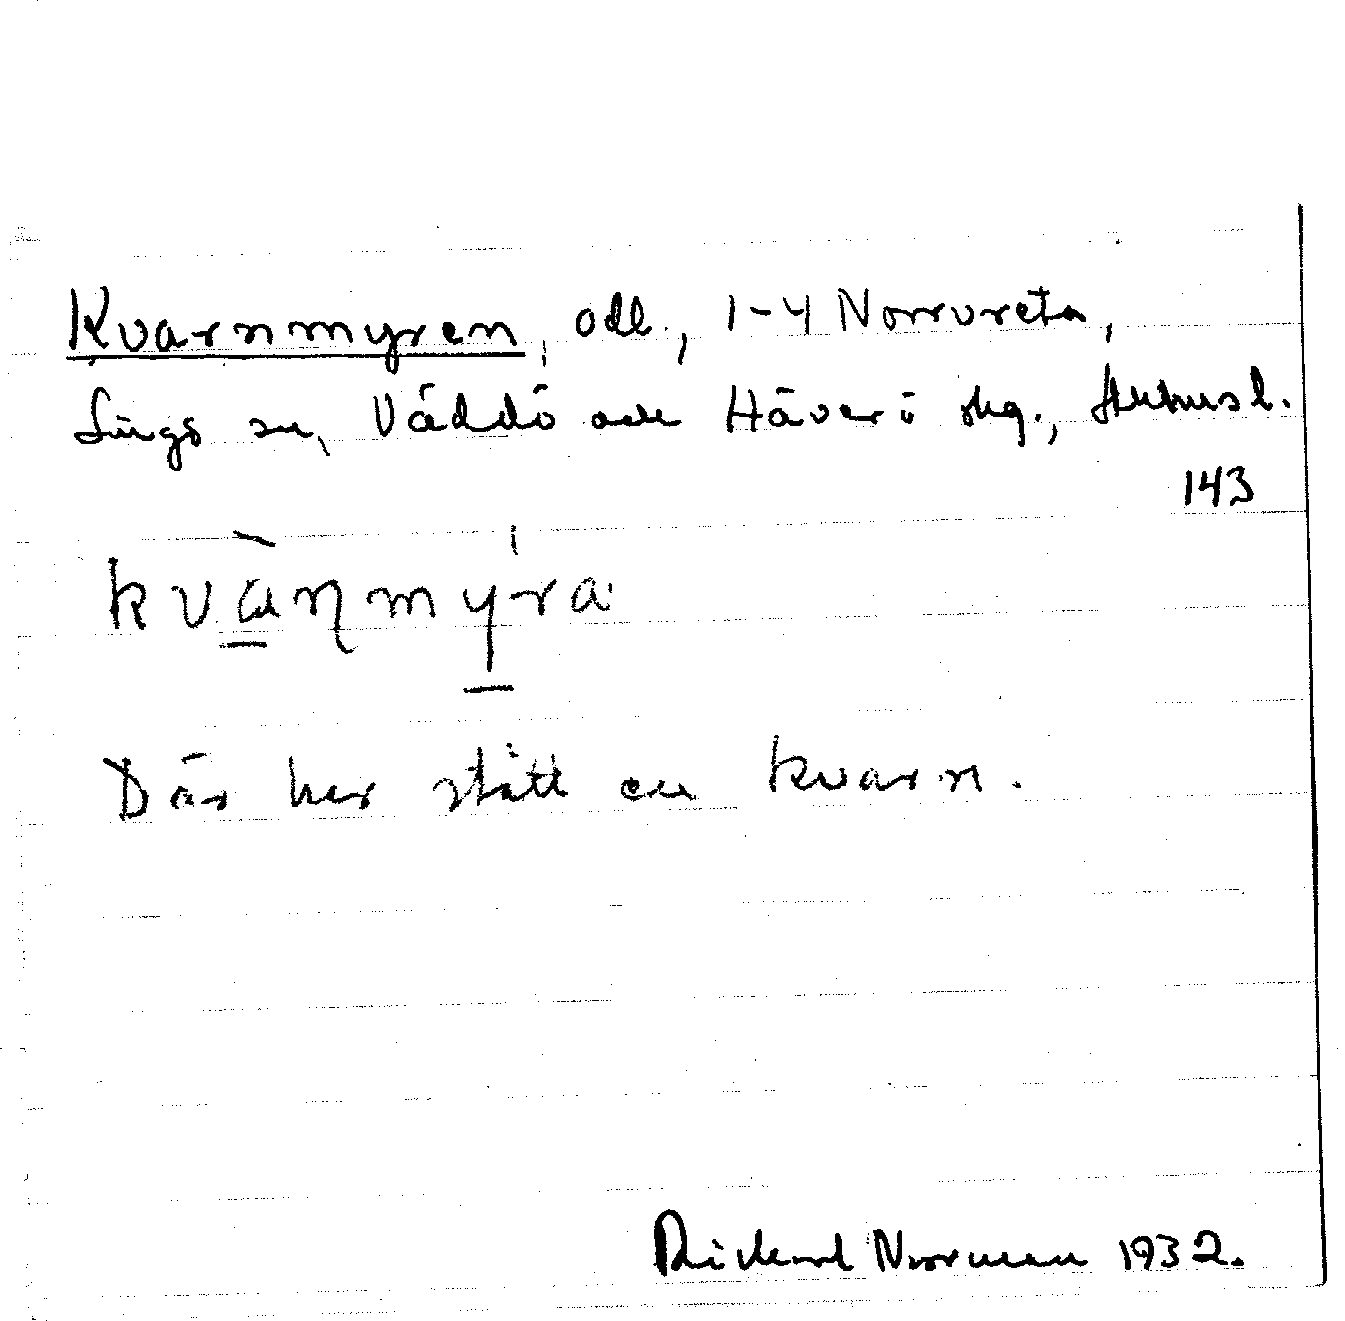 Kvarnmyren, odl., 1-4 Norrvreta,
Singö sn, Väddö och Häverö skg., Sthmsl.
143
kvànmýra
Där har stått en kvarn.
Rickard Norrman 1932.